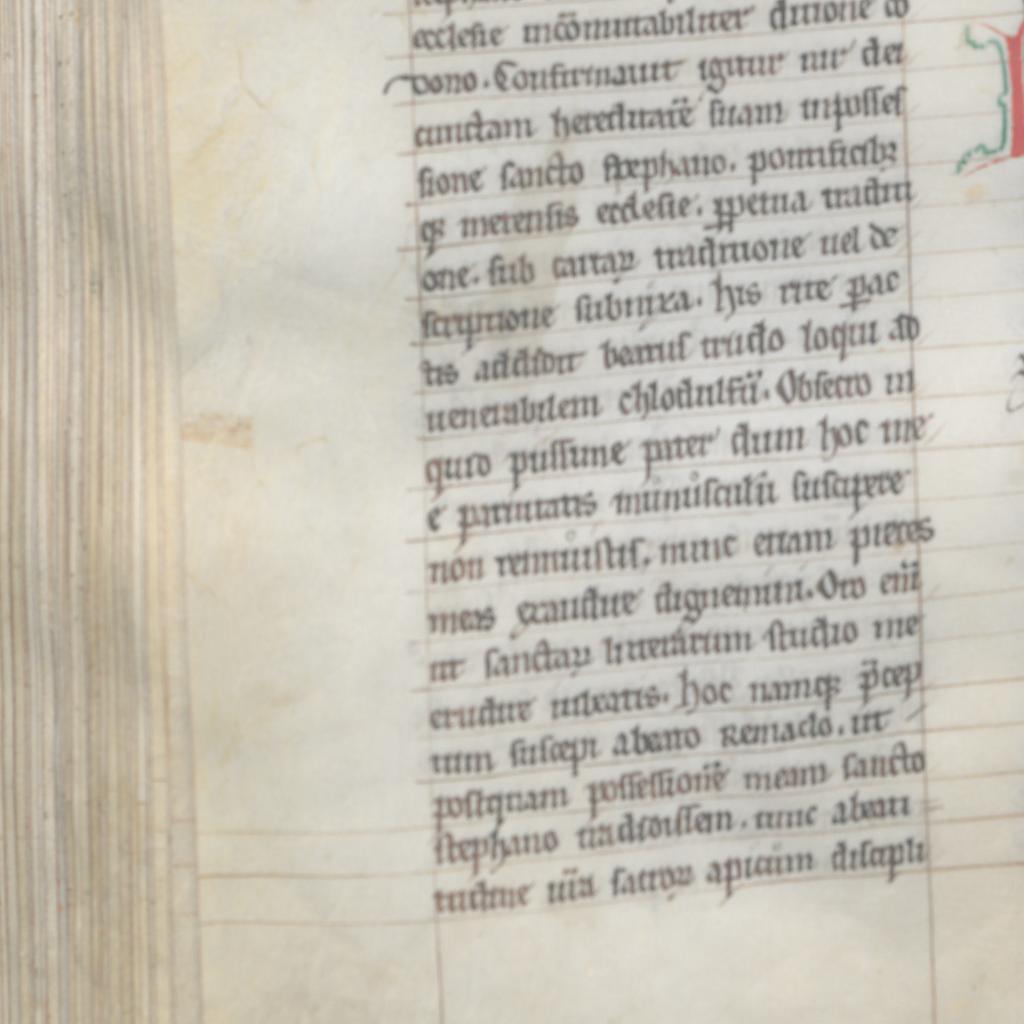 ecclesie incōmutabiliter ditione co
dono. Confirmauit igitur uir dei
cunctam hereditatē suam inposses
sione sancto stephano. pontificibꝫ
qꝫ metensis ecclesie. ꝑpetua traditi
one. sub cartaꝝ traditione uel de
scriptione subnixa. his rite ꝑac
tis addidit beatus trudo loqui ad
uenerabilem chlodulfū. Obsecro in
quid piissime pater dum hoc me
e paruitatis munusculū suscipere
non rennuistis, nunc etiam preces
meas exaudire dignemini. Oro eni
ut sanctaꝝ litterarum studio me
erudire iubeatis. hoc namqꝫ p̄cep
tum suscepi abeato Remaclo. ut
postquam possessionē meam sancto
stephano tradidissem. tunc abeati
tudine uīa sacroꝝ apicum discipli